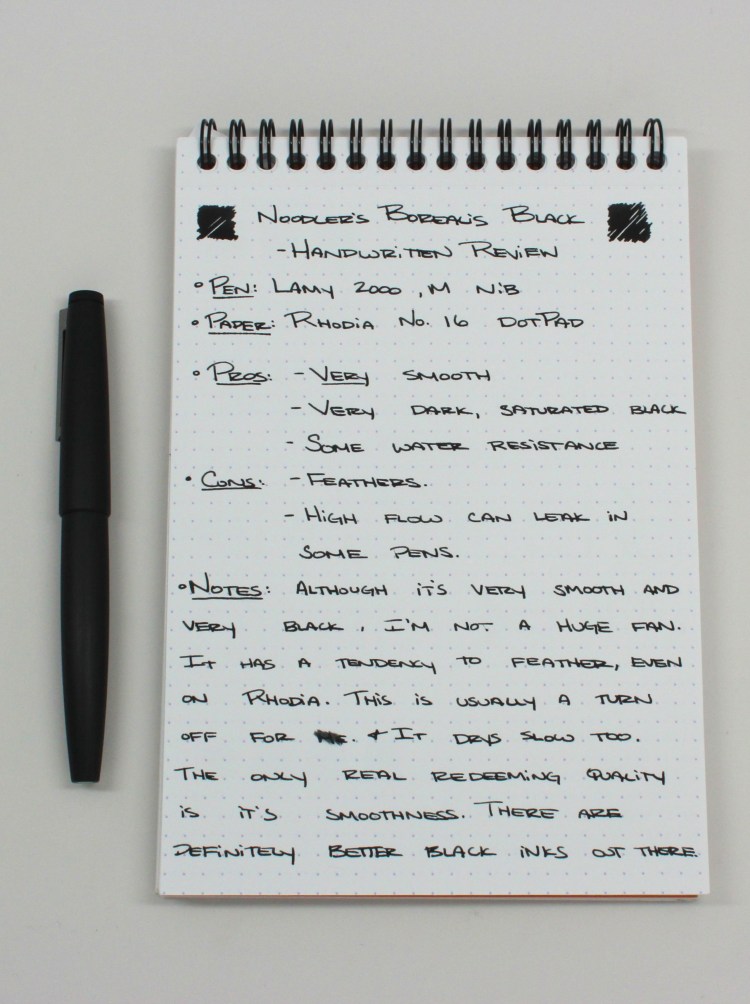 NOODLER'S BOREALIS BLACK
- HANDWRITTEN REVIEW
• PEN: LAMY 2000, M NIB
• PAPER: RHODIA NO. 16 DOTPAD
• PROS: - VERY SMOOTH
- VERY DARK, SATURATED BLACK
- SOME WATER RESISTANCE
• CONS: - FEATHERS.
- HIGH FLOW CAN LEAK IN
SOME PENS.
• NOTES: ALTHOUGH IT'S VERY SMOOTH AND
VERY BLACK, I'M NOT A HUGE FAN.
IT HAS A TENDENCY TO FEATHER, EVEN
ON RHODIA. THIS IS USUALLY A TURN
OFF FOR . & IT DRYS SLOW TOO.
THE ONLY REAL REDEEMING QUALITY
IS IT'S SMOOTHNESS. THERE ARE
DEFINITELY BETTER BLACK INKS OUT THERE.